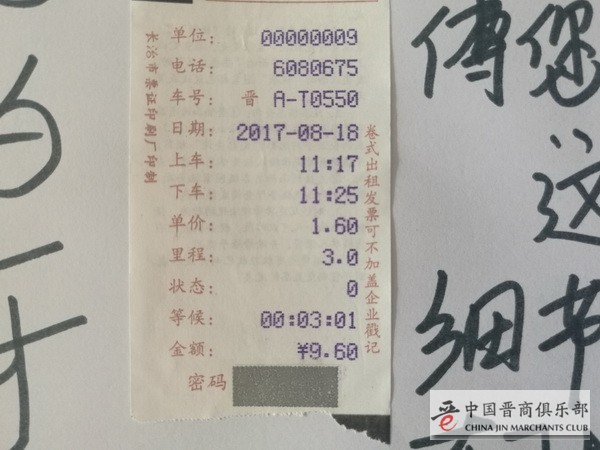 单位: 00000009
电话: 6080675
车号: 晋 A-T0550
日期: 2017-08-18
上车: 11:17
下车: 11:25
单价: 1.60
里程: 3.0
状态: 0
等候: 00:03:01
金额: ¥9.60
密码
长治市票证印刷厂印制
卷式出租发票可不加盖企业戳记
的
一
才
傅您
这
细节
晋e 中国晋商俱乐部
CHINA JIN MARCHANTS CLUB